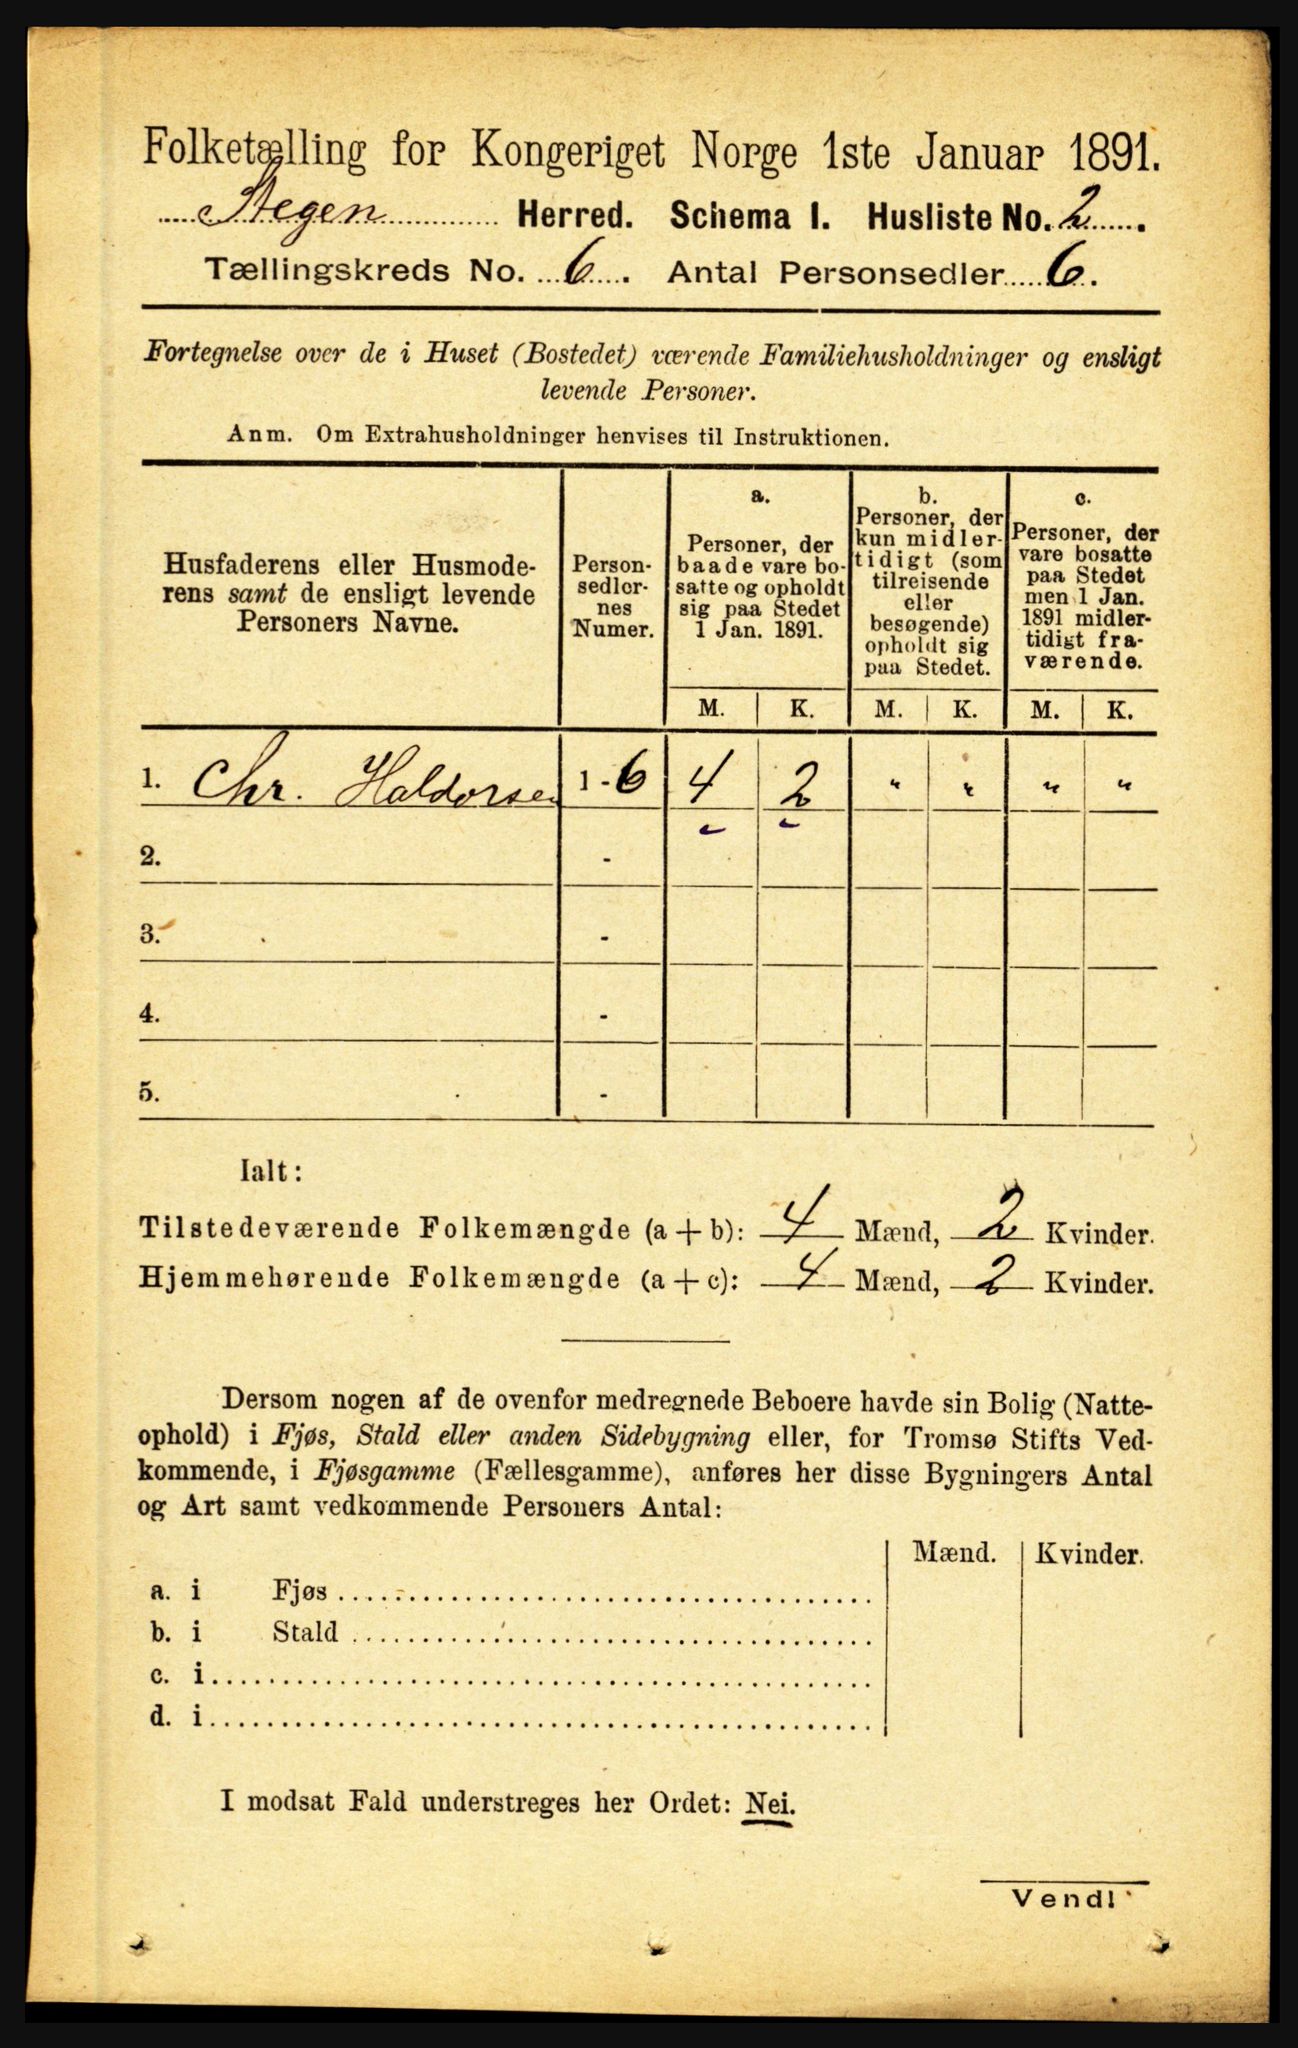 Folketælling for Kongeriget Norge 1ste Januar 1891.
Stegen Herred. Schema I. Husliste No. 2.
Tællingskreds No. 6. Antal Personsedler 6.
Fortegnelse over de i Huset (Bostedet) værende Familiehusholdninger og ensligt
levende Personer.
Anm. Om Extrahusholdninger henvises til Instruktionen.
Husfaderens eller Husmode-
rens samt de ensligt levende
Personers Navne.
Person-
sedler-
nes
Numer.
a.
Personer, der
baade vare bo-
satte og opholdt
sig paa Stedet
1 Jan. 1891.
b.
Personer, der
kun midler-
tidigt (som
tilreisende
eller
besøgende)
opholdt sig
paa Stedet.
c.
Personer, der
vare bosatte
paa Stedet
men 1 Jan.
1891 midler-
tidigt fra-
værende.
M. K. M. K. M. K.
1. Chr. Haldorsen 1 - 6 4 2 " " " "
2. -
3. -
4. -
5. -
Ialt:
Tilstedeværende Folkemængde (a + b): 4 Mænd, 2 Kvinder.
Hjemmehørende Folkemængde (a + c): 4 Mænd, 2 Kvinder.
Dersom nogen af de ovenfor medregnede Beboere havde sin Bolig (Natte-
ophold) i Fjøs, Stald eller anden Sidebygning eller, for Tromsø Stifts Ved-
kommende, i Fjøsgamme (Fællesgamme), anføres her disse Bygningers Antal
og Art samt vedkommende Personers Antal:
Mænd. Kvinder.
a. i Fjøs
b. i Stald
c. i
d. i
I modsat Fald understreges her Ordet: Nei.
Vend!